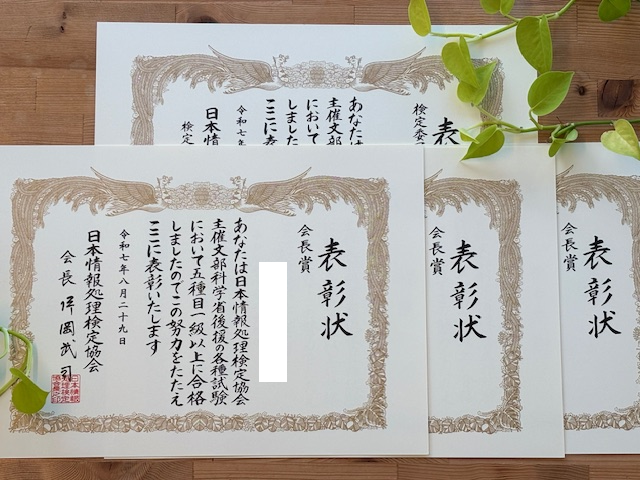 表彰状
会長賞
あなたは日本情報処理検定協会
主催文部科学省後援の各種試験
において五種目一級以上に合格
しましたのでこの努力をたたえ
ここに表彰いたします
令和七年八月二十九日
日本情報処理検定協会
会長
表彰状
会長賞
表彰状
会長賞
表
検定委
あなたは
主催文部
におい
しました
ここに表
令和七年
日本情
検定